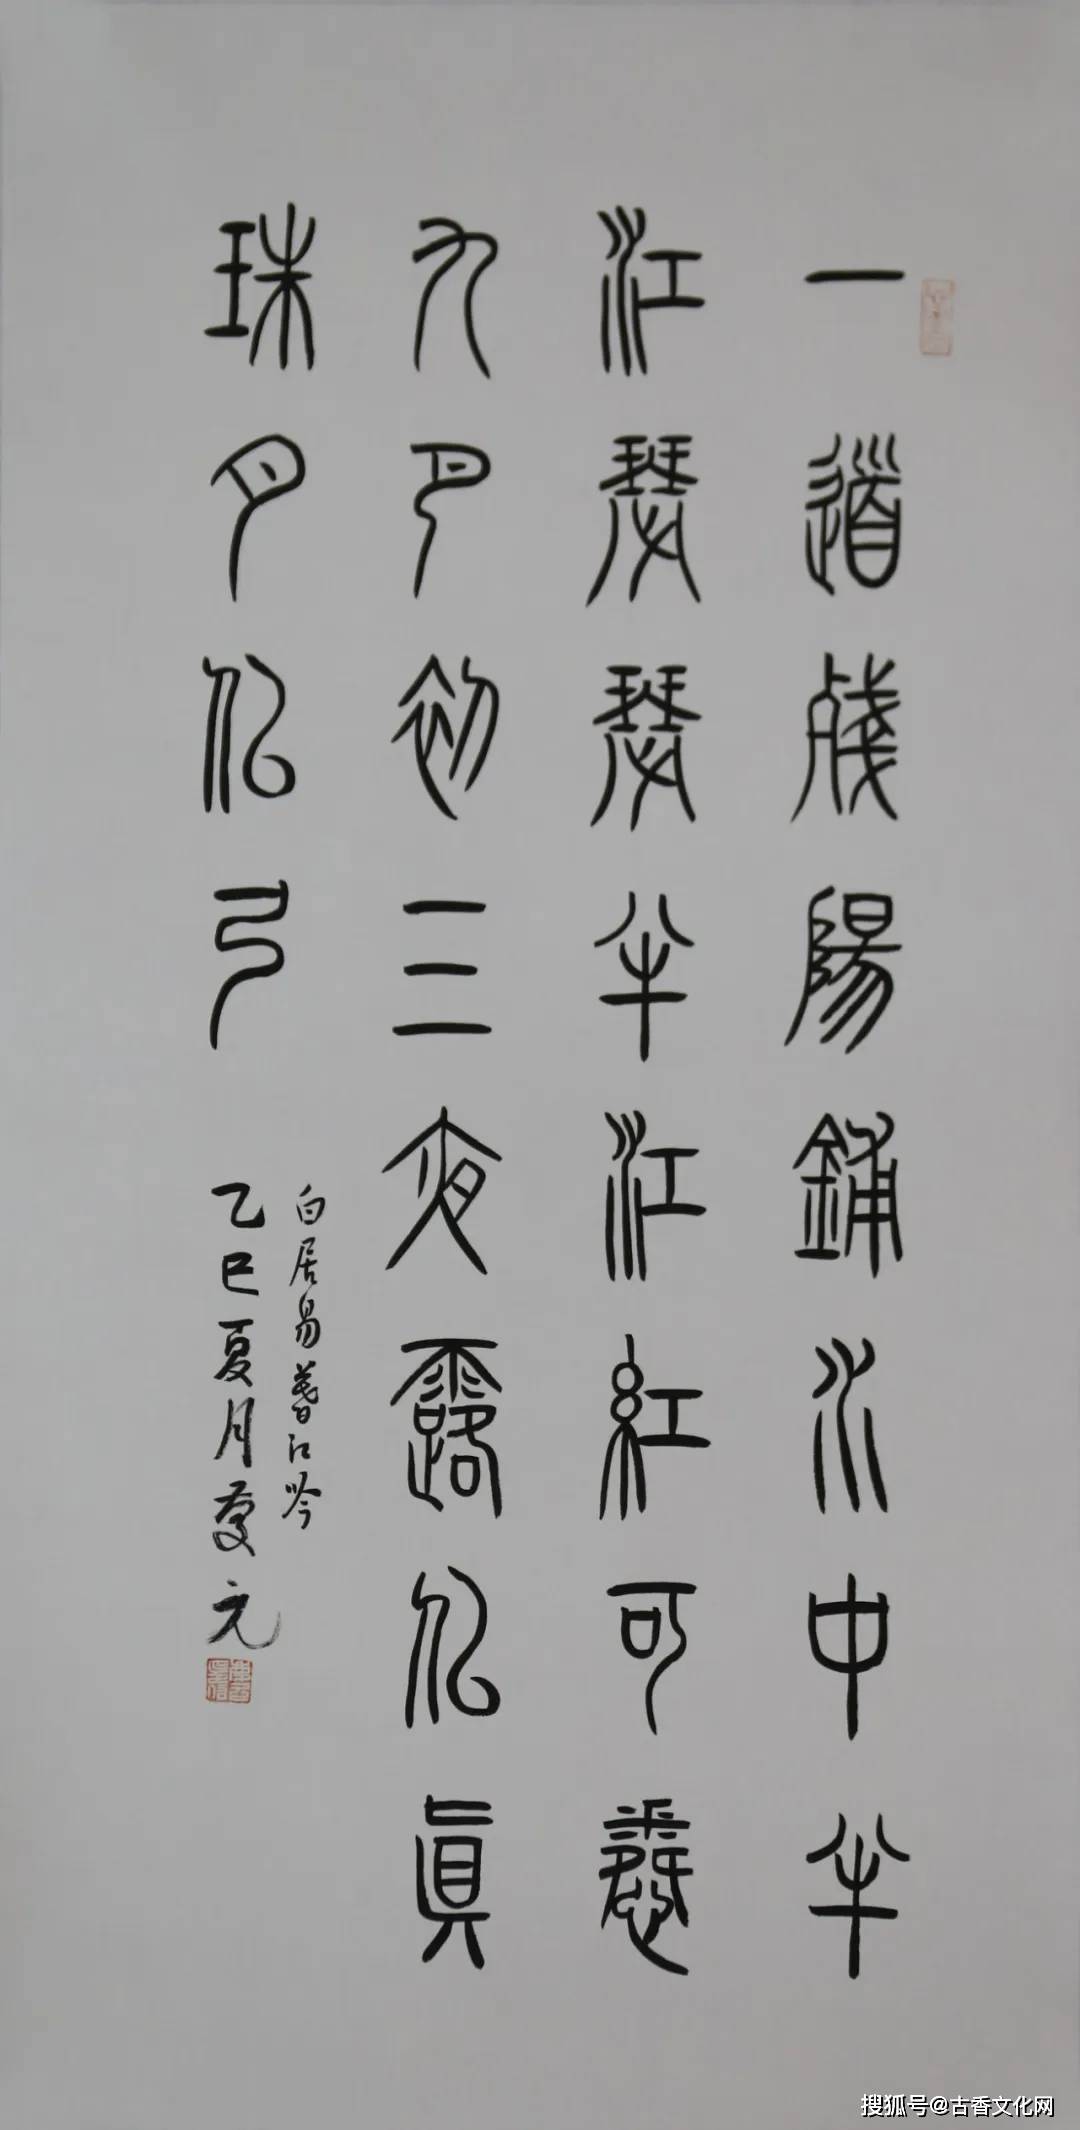 一道殘陽鋪水中半
江瑟瑟半江紅可憐
九月初三夜露似真
珠月似弓
白居易暮江吟
乙巳夏月慶元
搜狐号@古香文化网